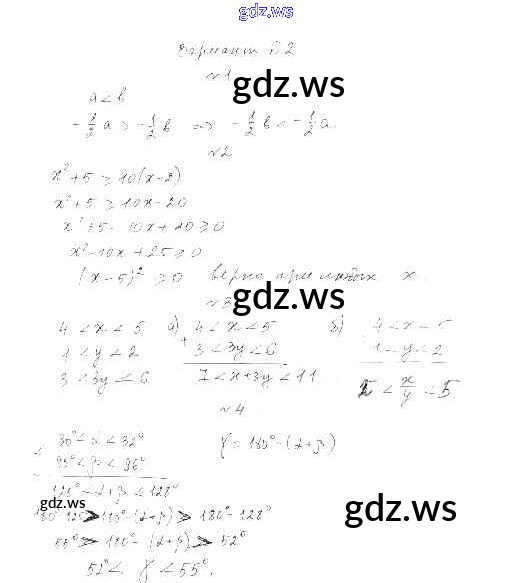 gdz.ws
Вариант Б2
№1
gdz.ws
a < b
- 1/2 a > - 1/2 b => - 1/2 b < - 1/2 a.
№2
x² + 5 ≥ 10(x - 2)
x² + 5 ≥ 10x - 20
x² + 5 - 10x + 20 ≥ 0
x² - 10x + 25 ≥ 0
(x - 5)² ≥ 0 верно при любых x.
gdz.ws
№3
4 < x < 5 а) 4 < x < 5 б) 4 < x < 5
1 < y < 2 + 3 < 3y < 6 1 < y < 2
3 < 3y < 6 7 < x + 3y < 11 2 < x/y < 5
№4
30° < α < 32° γ = 180° - (α + β)
95° < β < 96°
125° < α + β < 128°
gdz.ws
180° - 125° > 180° - (α + β) > 180° - 128°
gdz.ws
55° > 180° - (α + β) > 52°
52° < γ < 55°.